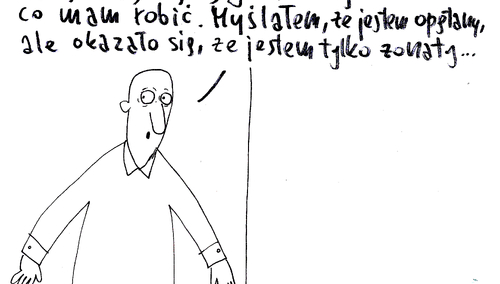 co mam robić. Myślałem, że jestem opętany,
ale okazało się, że jestem tylko żonaty...